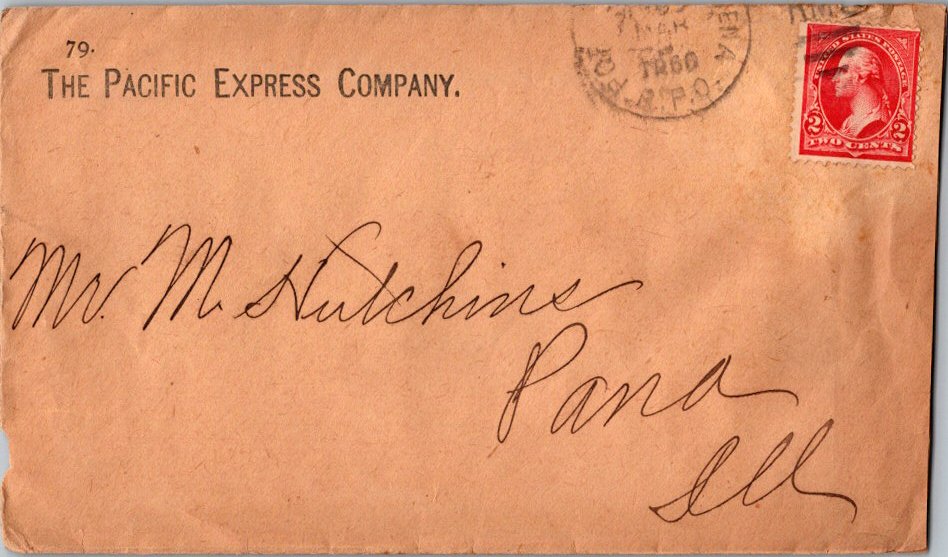 79.
THE PACIFIC EXPRESS COMPANY.
MAR
R.P.O.
UNITED STATES POSTAGE
2 2
TWO CENTS
Mr. M. Hutchins
Pana
Ill